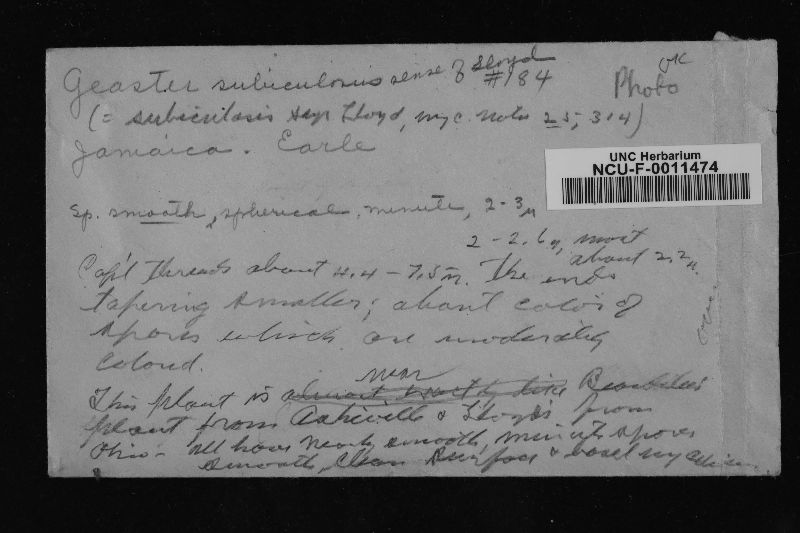 Geaster subiculosus sense of Lloyd
#184
Photo OK
(= subiculosis Lloyd, myc. notes 25; 314)
Jamaica. Earle
UNC Herbarium
NCU-F-0011474
Sp. smooth, spherical, minute, 2-3µ
2-2.6µ, most
about 2.2µ.
Cap't threads about 4.4-7.5µ. The ends
tapering smaller; about color of
spores which are moderately
colored.
near
This plant is almost exactly like Beardslee's
plant from Asheville & Lloyd's from
Ohio - All have nearly smooth, minute spores
smooth, clean surface & basal